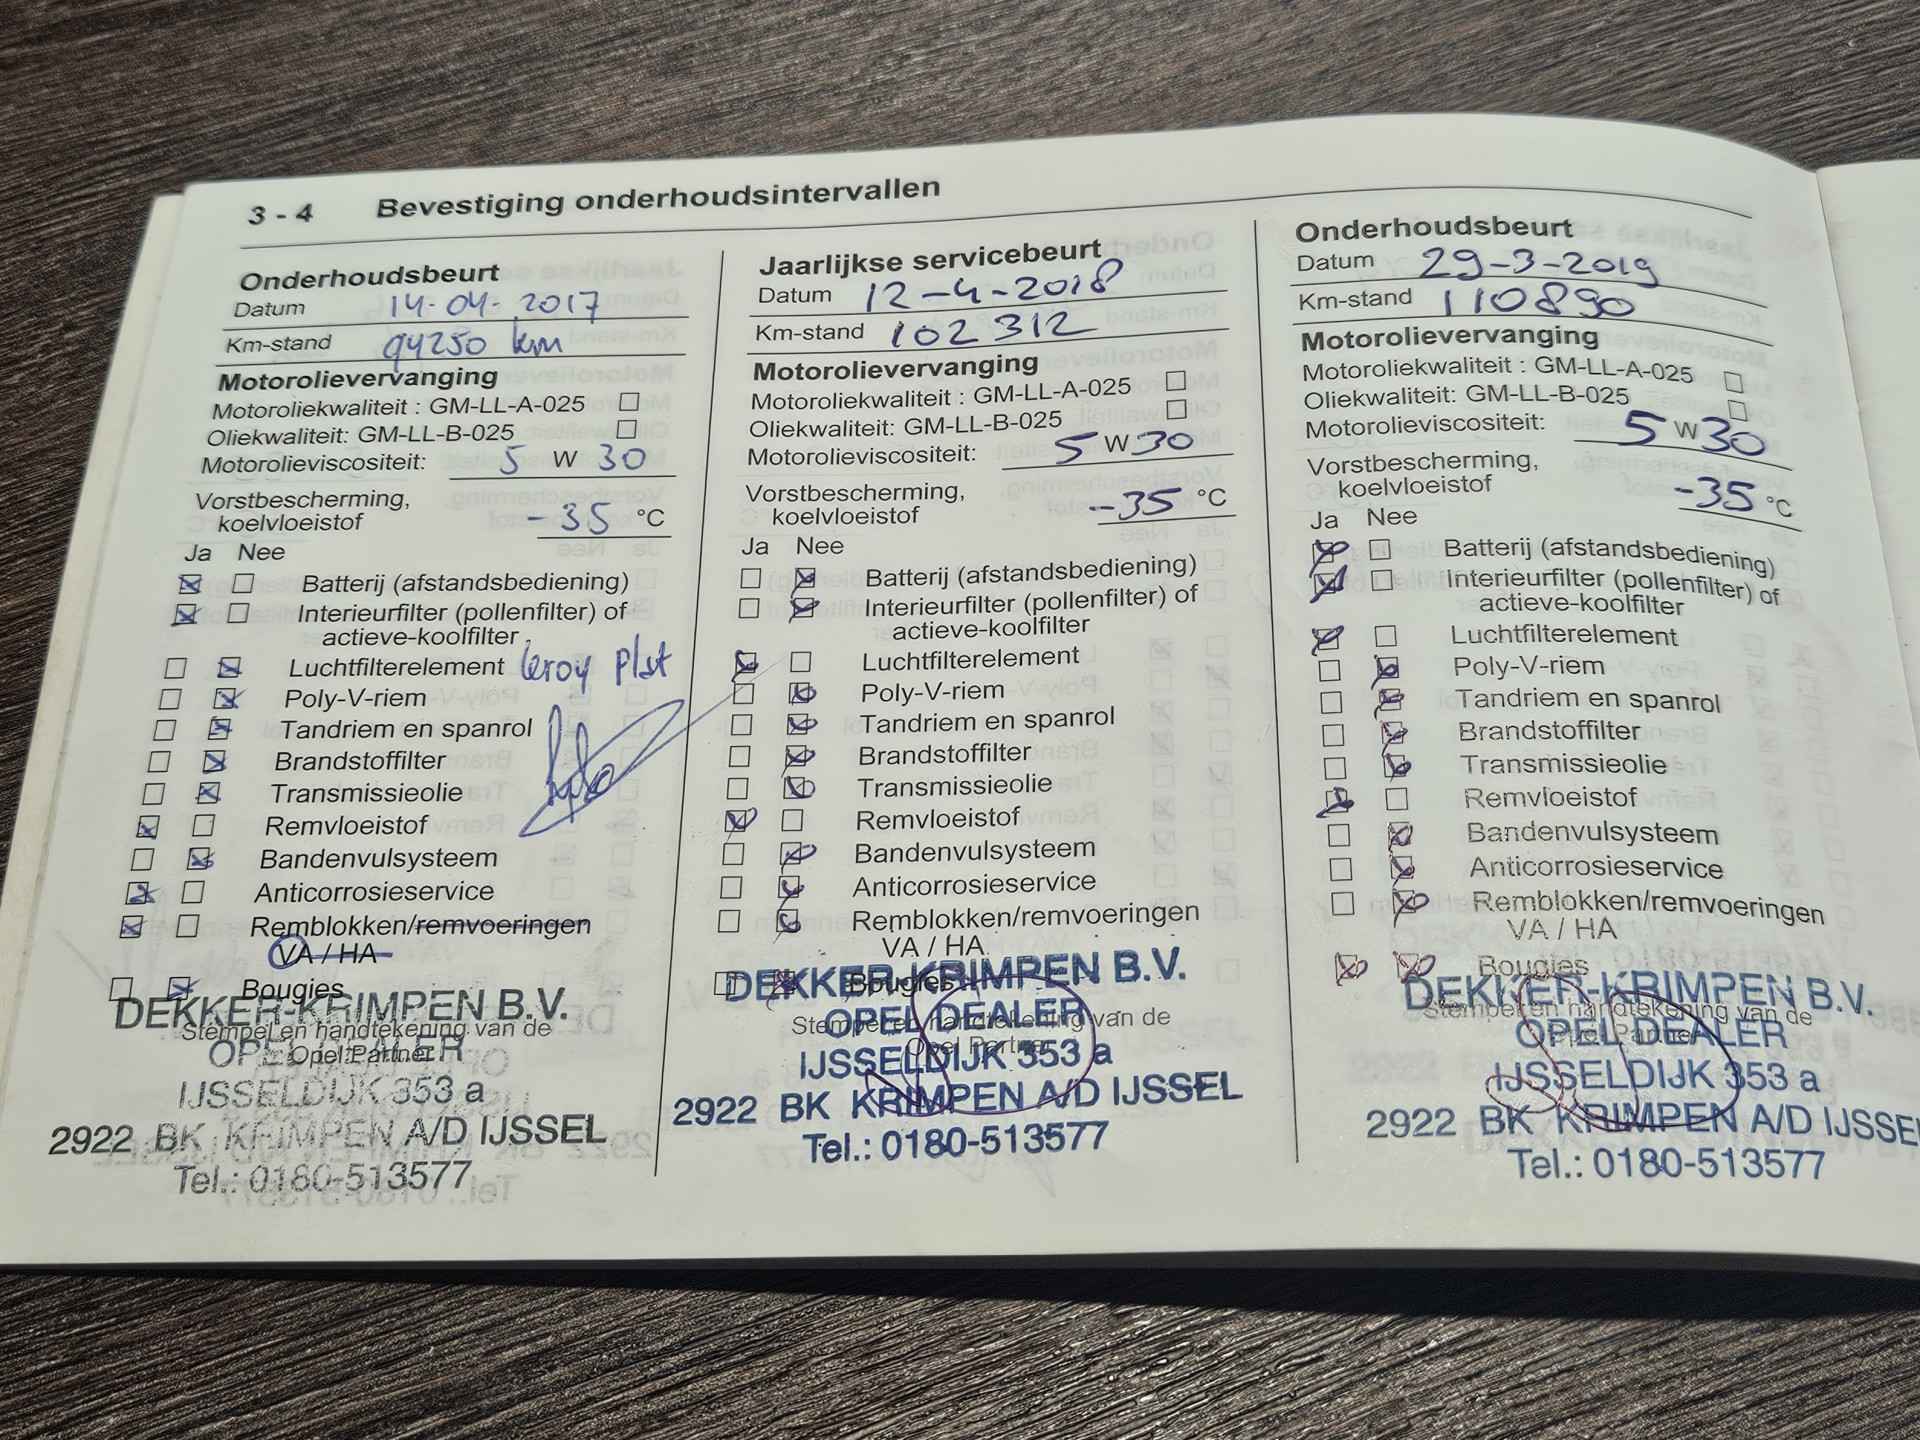 3 - 4 Bevestiging onderhoudsintervallen
Onderhoudsbeurt
Datum 14-04-2017
Km-stand 94250 km
Motorolievervanging
Motoroliekwaliteit : GM-LL-A-025
Oliekwaliteit: GM-LL-B-025
Motorolieviscositeit: 5 W 30
Vorstbescherming,
koelvloeistof -35 °C
Ja Nee
Batterij (afstandsbediening)
Interieurfilter (pollenfilter) of
actieve-koolfilter
Luchtfilterelement
Poly-V-riem
Tandriem en spanrol
Brandstoffilter
Transmissieolie
Remvloeistof
Bandenvulsysteem
Anticorrosieservice
Remblokken/remvoeringen
VA / HA
Bougies
Stempel en handtekening van de
Opel Partner
DEKKER-KRIMPEN B.V.
OPEL DEALER
IJSSELDIJK 353 a
2922 BK KRIMPEN A/D IJSSEL
Tel.: 0180-513577
Jaarlijkse servicebeurt
Datum 12-4-2018
Km-stand 102312
Motorolievervanging
Motoroliekwaliteit : GM-LL-A-025
Oliekwaliteit: GM-LL-B-025
Motorolieviscositeit: 5 W 30
Vorstbescherming,
koelvloeistof -35 °C
Ja Nee
Batterij (afstandsbediening)
Interieurfilter (pollenfilter) of
actieve-koolfilter
Luchtfilterelement
Poly-V-riem
Tandriem en spanrol
Brandstoffilter
Transmissieolie
Remvloeistof
Bandenvulsysteem
Anticorrosieservice
Remblokken/remvoeringen
VA / HA
Bougies
Stempel en handtekening van de
Opel Partner
DEKKER-KRIMPEN B.V.
OPEL DEALER
IJSSELDIJK 353 a
2922 BK KRIMPEN A/D IJSSEL
Tel.: 0180-513577
Onderhoudsbeurt
Datum 29-3-2019
Km-stand 110890
Motorolievervanging
Motoroliekwaliteit : GM-LL-A-025
Oliekwaliteit: GM-LL-B-025
Motorolieviscositeit: 5 W 30
Vorstbescherming,
koelvloeistof -35 °C
Ja Nee
Batterij (afstandsbediening)
Interieurfilter (pollenfilter) of
actieve-koolfilter
Luchtfilterelement
Poly-V-riem
Tandriem en spanrol
Brandstoffilter
Transmissieolie
Remvloeistof
Bandenvulsysteem
Anticorrosieservice
Remblokken/remvoeringen
VA / HA
Bougies
Stempel en handtekening van de
Opel Partner
DEKKER-KRIMPEN B.V.
OPEL DEALER
IJSSELDIJK 353 a
2922 BK KRIMPEN A/D IJSSE
Tel.: 0180-513577